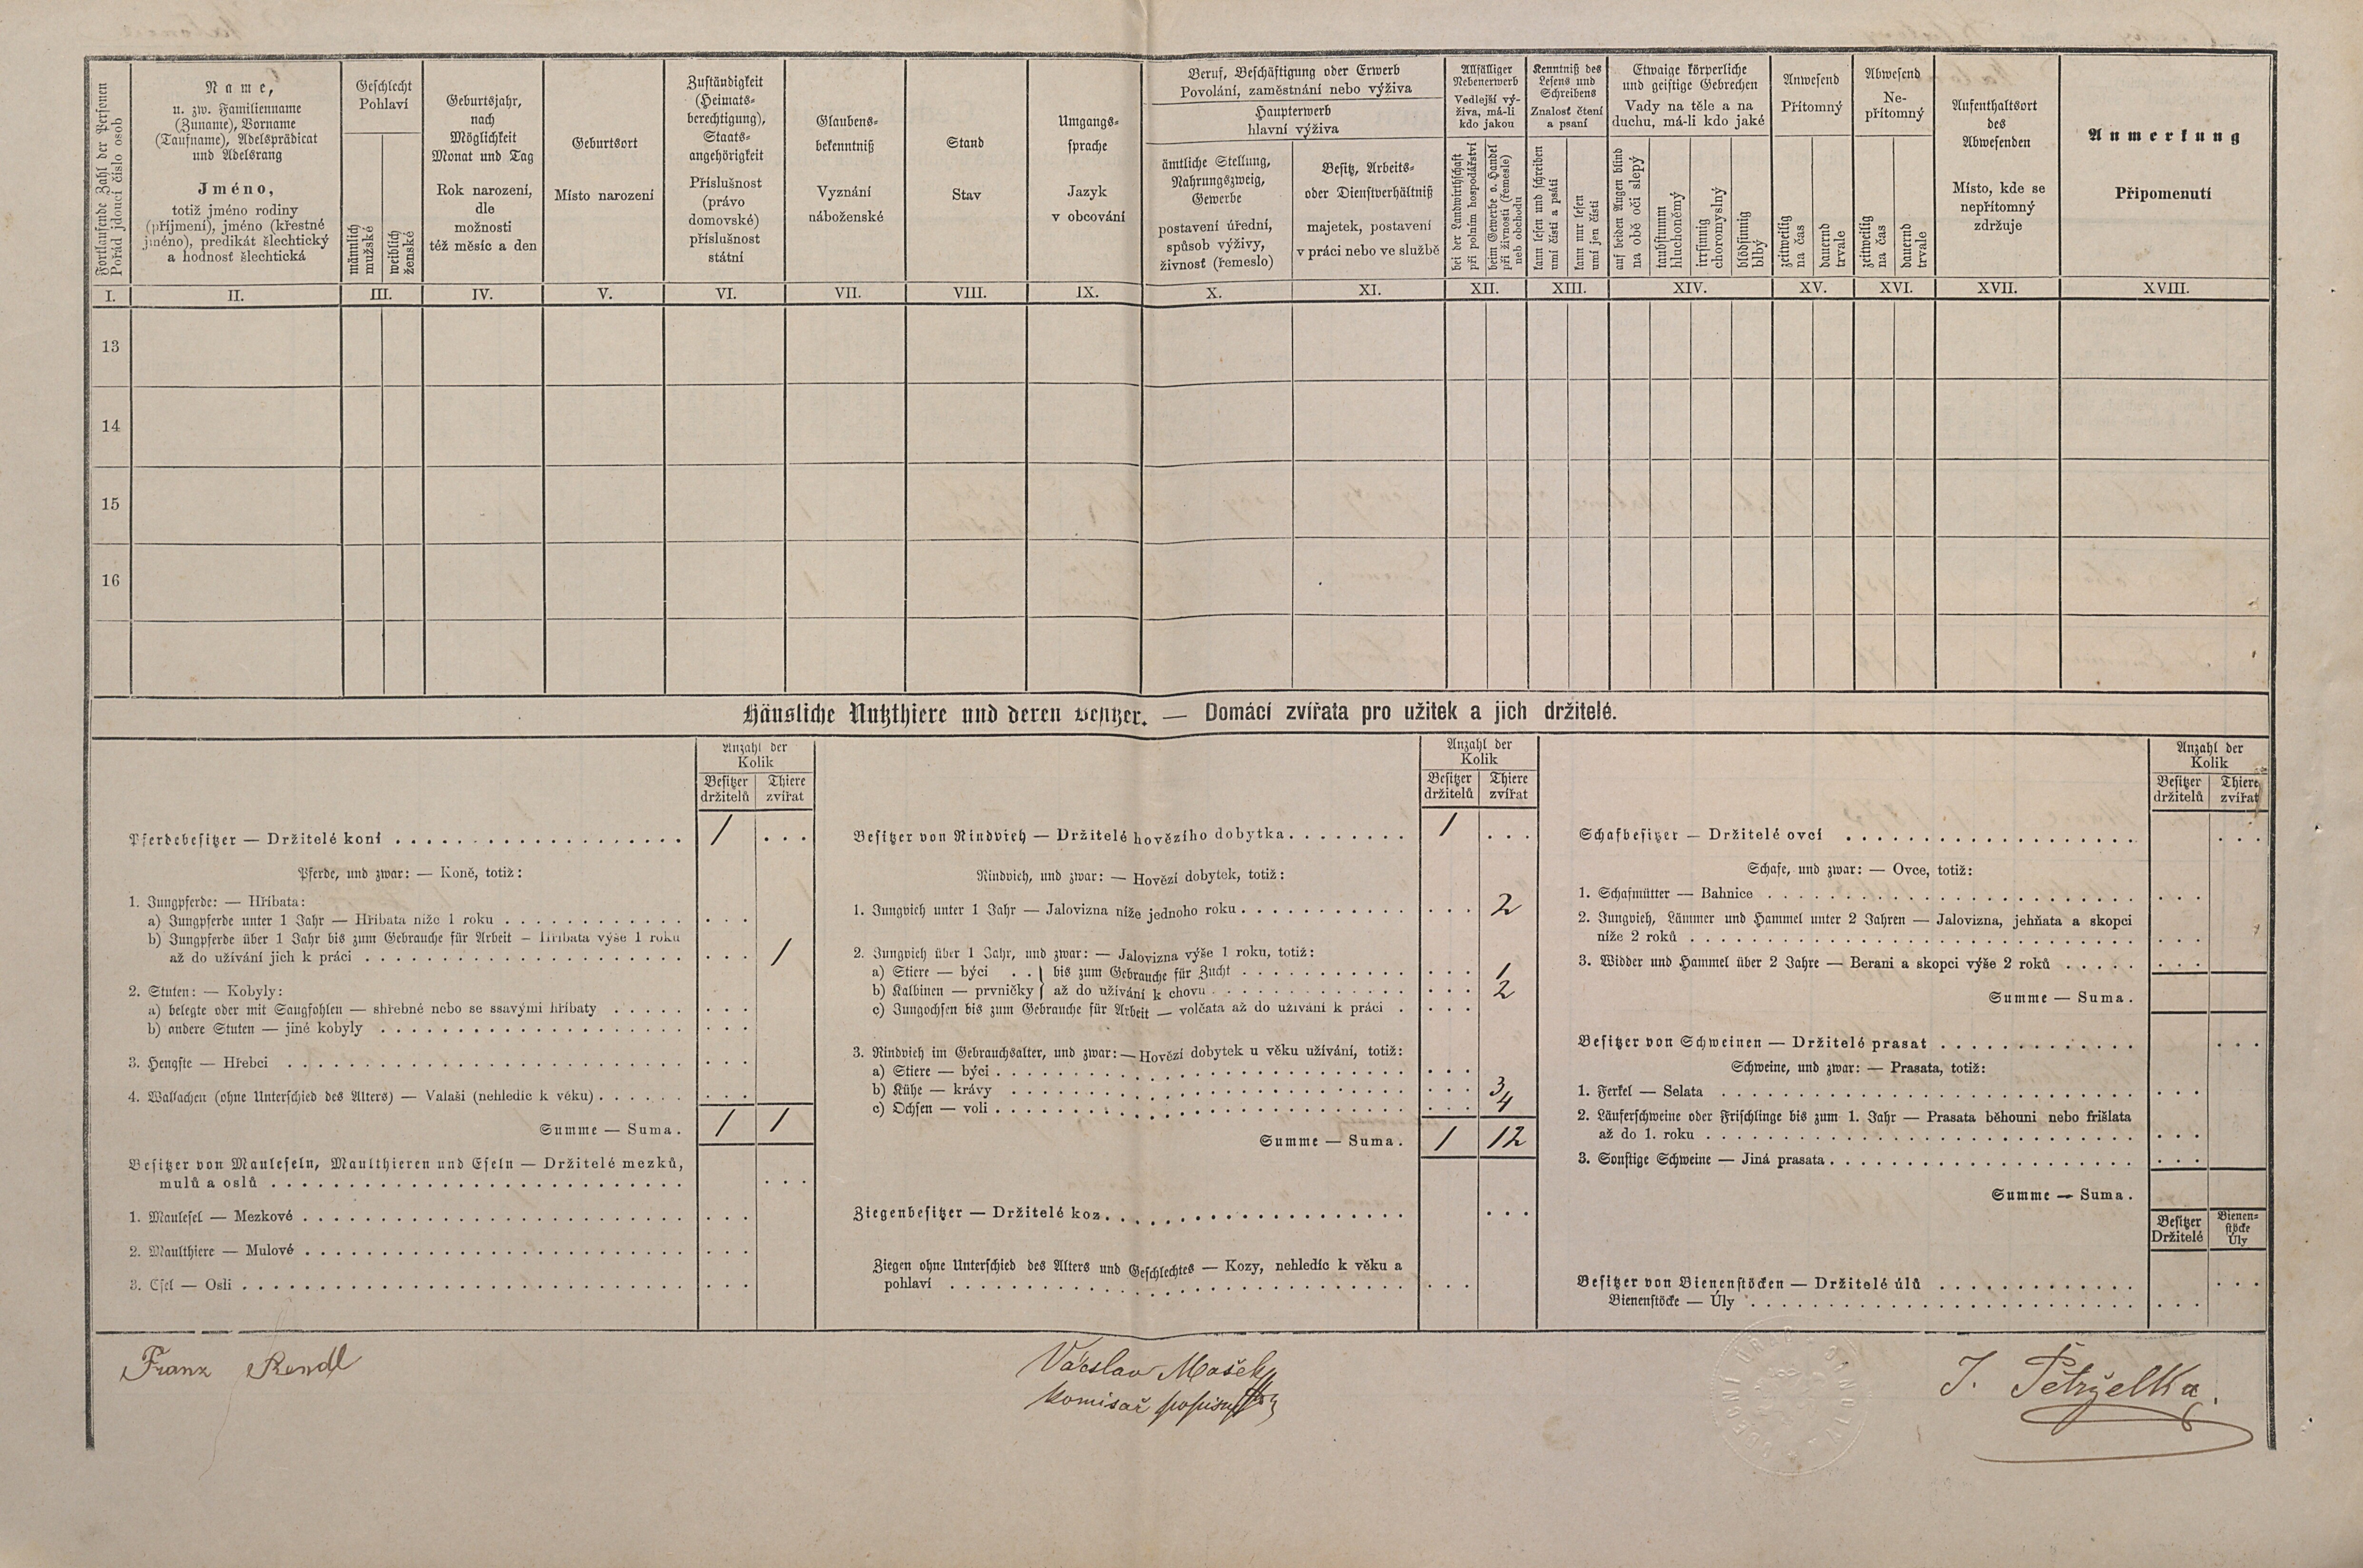 Fortlaufende Zahl der Personen
Pořad jdoucí číslo osob
Name,
u. zw. Familienname
(Zuname), Vorname
(Taufname), Adelsprädicat
und Adelsrang
Jméno,
totiž jméno rodiny
(příjmení), jméno (křestné
jméno), predikát šlechtický
a hodnosť šlechtická
Geschlecht
Pohlaví
männlich
mužské
weiblich
ženské
Geburtsjahr,
nach
Möglichkeit
Monat und Tag
Rok narození,
dle
možnosti
též měsíc a den
Geburtsort
Místo narození
Zuständigkeit
(Heimats-
berechtigung),
Staats-
angehörigkeit
Příslušnost
(právo
domovské)
příslušnost
státní
Glaubens-
bekenntniß
Vyznání
náboženské
Stand
Stav
Umgangs-
sprache
Jazyk
v obcování
Beruf, Beschäftigung oder Erwerb
Povolání, zaměstnání nebo výživa
Haupterwerb
hlavní výživa
ämtliche Stellung,
Nahrungszweig,
Gewerbe
postavení úřední,
spůsob výživy,
živnosť (řemeslo)
Besitz, Arbeits-
oder Dienstverhältniß
majetek, postavení
v práci nebo ve službě
Allfälliger
Nebenerwerb
Vedlejší vý-
živa, má-li
kdo jakou
bei der Landwirthschaft
při polním hospodářství
beim Gewerbe o. Handel
při živnosti (řemesle)
neb obchodu
Kenntniß des
Lesens und
Schreibens
Znalosť čtení
a psaní
kann lesen und schreiben
umí čísti a psáti
kann nur lesen
umí jen čísti
Etwaige körperliche
und geistige Gebrechen
Vady na těle a na
duchu, má-li kdo jaké
auf beiden Augen blind
na obě oči slepý
taubstumm
hluchoněmý
irrsinnig
choromyslný
blödsinnig
blbý
Anwesend
Přítomný
zeitweilig
na čas
dauernd
trvale
Abwesend
Ne-
přítomný
zeitweilig
na čas
dauernd
trvale
Aufenthaltsort
des
Abwesenden
Místo, kde se
nepřítomný
zdržuje
Anmerkung
Připomenutí
I. II. III. IV. V. VI. VII. VIII. IX. X. XI. XII. XIII. XIV. XV. XVI. XVII. XVIII.
13
14
15
16
Häusliche Nutzthiere und deren Besitzer. — Domácí zvířata pro užitek a jich držitelé.
Anzahl der
Kolik
Besitzer Thiere
držitelů zvířat
Pferdebesitzer — Držitelé koní 1
Pferde, und zwar: — Koně, totiž:
1. Jungpferde: — Hříbata:
a) Jungpferde unter 1 Jahr — Hříbata níže 1 roku
b) Jungpferde über 1 Jahr bis zum Gebrauche für Arbeit — Hříbata výše 1 roku
až do užívání jich k práci 1
2. Stuten: — Kobyly:
a) belegte oder mit Saugfohlen — shřebné nebo se ssavými hříbaty
b) andere Stuten — jiné kobyly
3. Hengste — Hřebci
4. Wallachen (ohne Unterschied des Alters) — Valaši (nehledíc k věku)
Summe — Suma. 1 1
Besitzer von Mauleseln, Maulthieren und Eseln — Držitelé mezků,
mulů a oslů
1. Maulesel — Mezkové
2. Maulthiere — Mulové
3. Esel — Osli
Anzahl der
Kolik
Besitzer Thiere
držitelů zvířat
Besitzer von Rindvieh — Držitelé hovězího dobytka 1
Rindvieh, und zwar: — Hovězí dobytek, totiž:
1. Jungvieh unter 1 Jahr — Jalovizna níže jednoho roku 2
2. Jungvieh über 1 Jahr, und zwar: — Jalovizna výše 1 roku, totiž:
a) Stiere — býci . . } bis zum Gebrauche für Zucht 1
b) Kalbinen — prvničky } až do užívání k chovu 2
c) Jungochsen bis zum Gebrauche für Arbeit — volčata až do užívání k práci
3. Rindvieh im Gebrauchsalter, und zwar: — Hovězí dobytek u věku užívání, totiž:
a) Stiere — býci
b) Kühe — krávy 3
c) Ochsen — voli 4
Summe — Suma. 1 12
Ziegenbesitzer — Držitelé koz
Ziegen ohne Unterschied des Alters und Geschlechtes — Kozy, nehledíc k věku a
pohlaví
Anzahl der
Kolik
Besitzer Thiere
držitelů zvířat
Schafbesitzer — Držitelé ovcí
Schafe, und zwar: — Ovce, totiž:
1. Schafmütter — Bahnice
2. Jungvieh, Lämmer und Hammel unter 2 Jahren — Jalovizna, jehňata a skopci
níže 2 roků
3. Widder und Hammel über 2 Jahre — Berani a skopci výše 2 roků
Summe — Suma.
Besitzer von Schweinen — Držitelé prasat
Schweine, und zwar: — Prasata, totiž:
1. Ferkel — Selata
2. Läuferschweine oder Frischlinge bis zum 1. Jahr — Prasata běhouni nebo frišlata
až do 1. roku
3. Sonstige Schweine — Jiná prasata
Summe — Suma.
Besitzer Bienen-
stöcke
Držitelé Úly
Besitzer von Bienenstöcken — Držitelé úlů
Bienenstöcke — Úly
Franz Rendl
Václav Mašek
komisař popisný
J. Petrželka.